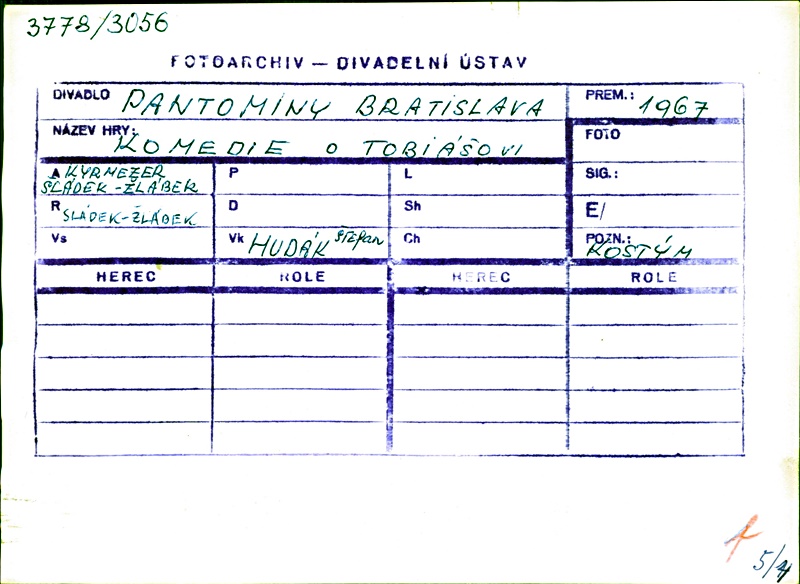 3778/3056
FOTOARCHIV — DIVADELNÍ ÚSTAV
DIVADLO PANTOMIMY BRATISLAVA PREM.: 1967
NÁZEV HRY: KOMEDIE O TOBIÁŠOVI FOTO
A KYRMEZER P L SIG.:
SLÁDEK-ŽLÁBEK
R SLÁDEK-ŽLÁBEK D Sh E/
Vs Vk HUDÁK ŠTEPAN Ch POZN.: KOSTÝM
HEREC ROLE HEREC ROLE
5/4